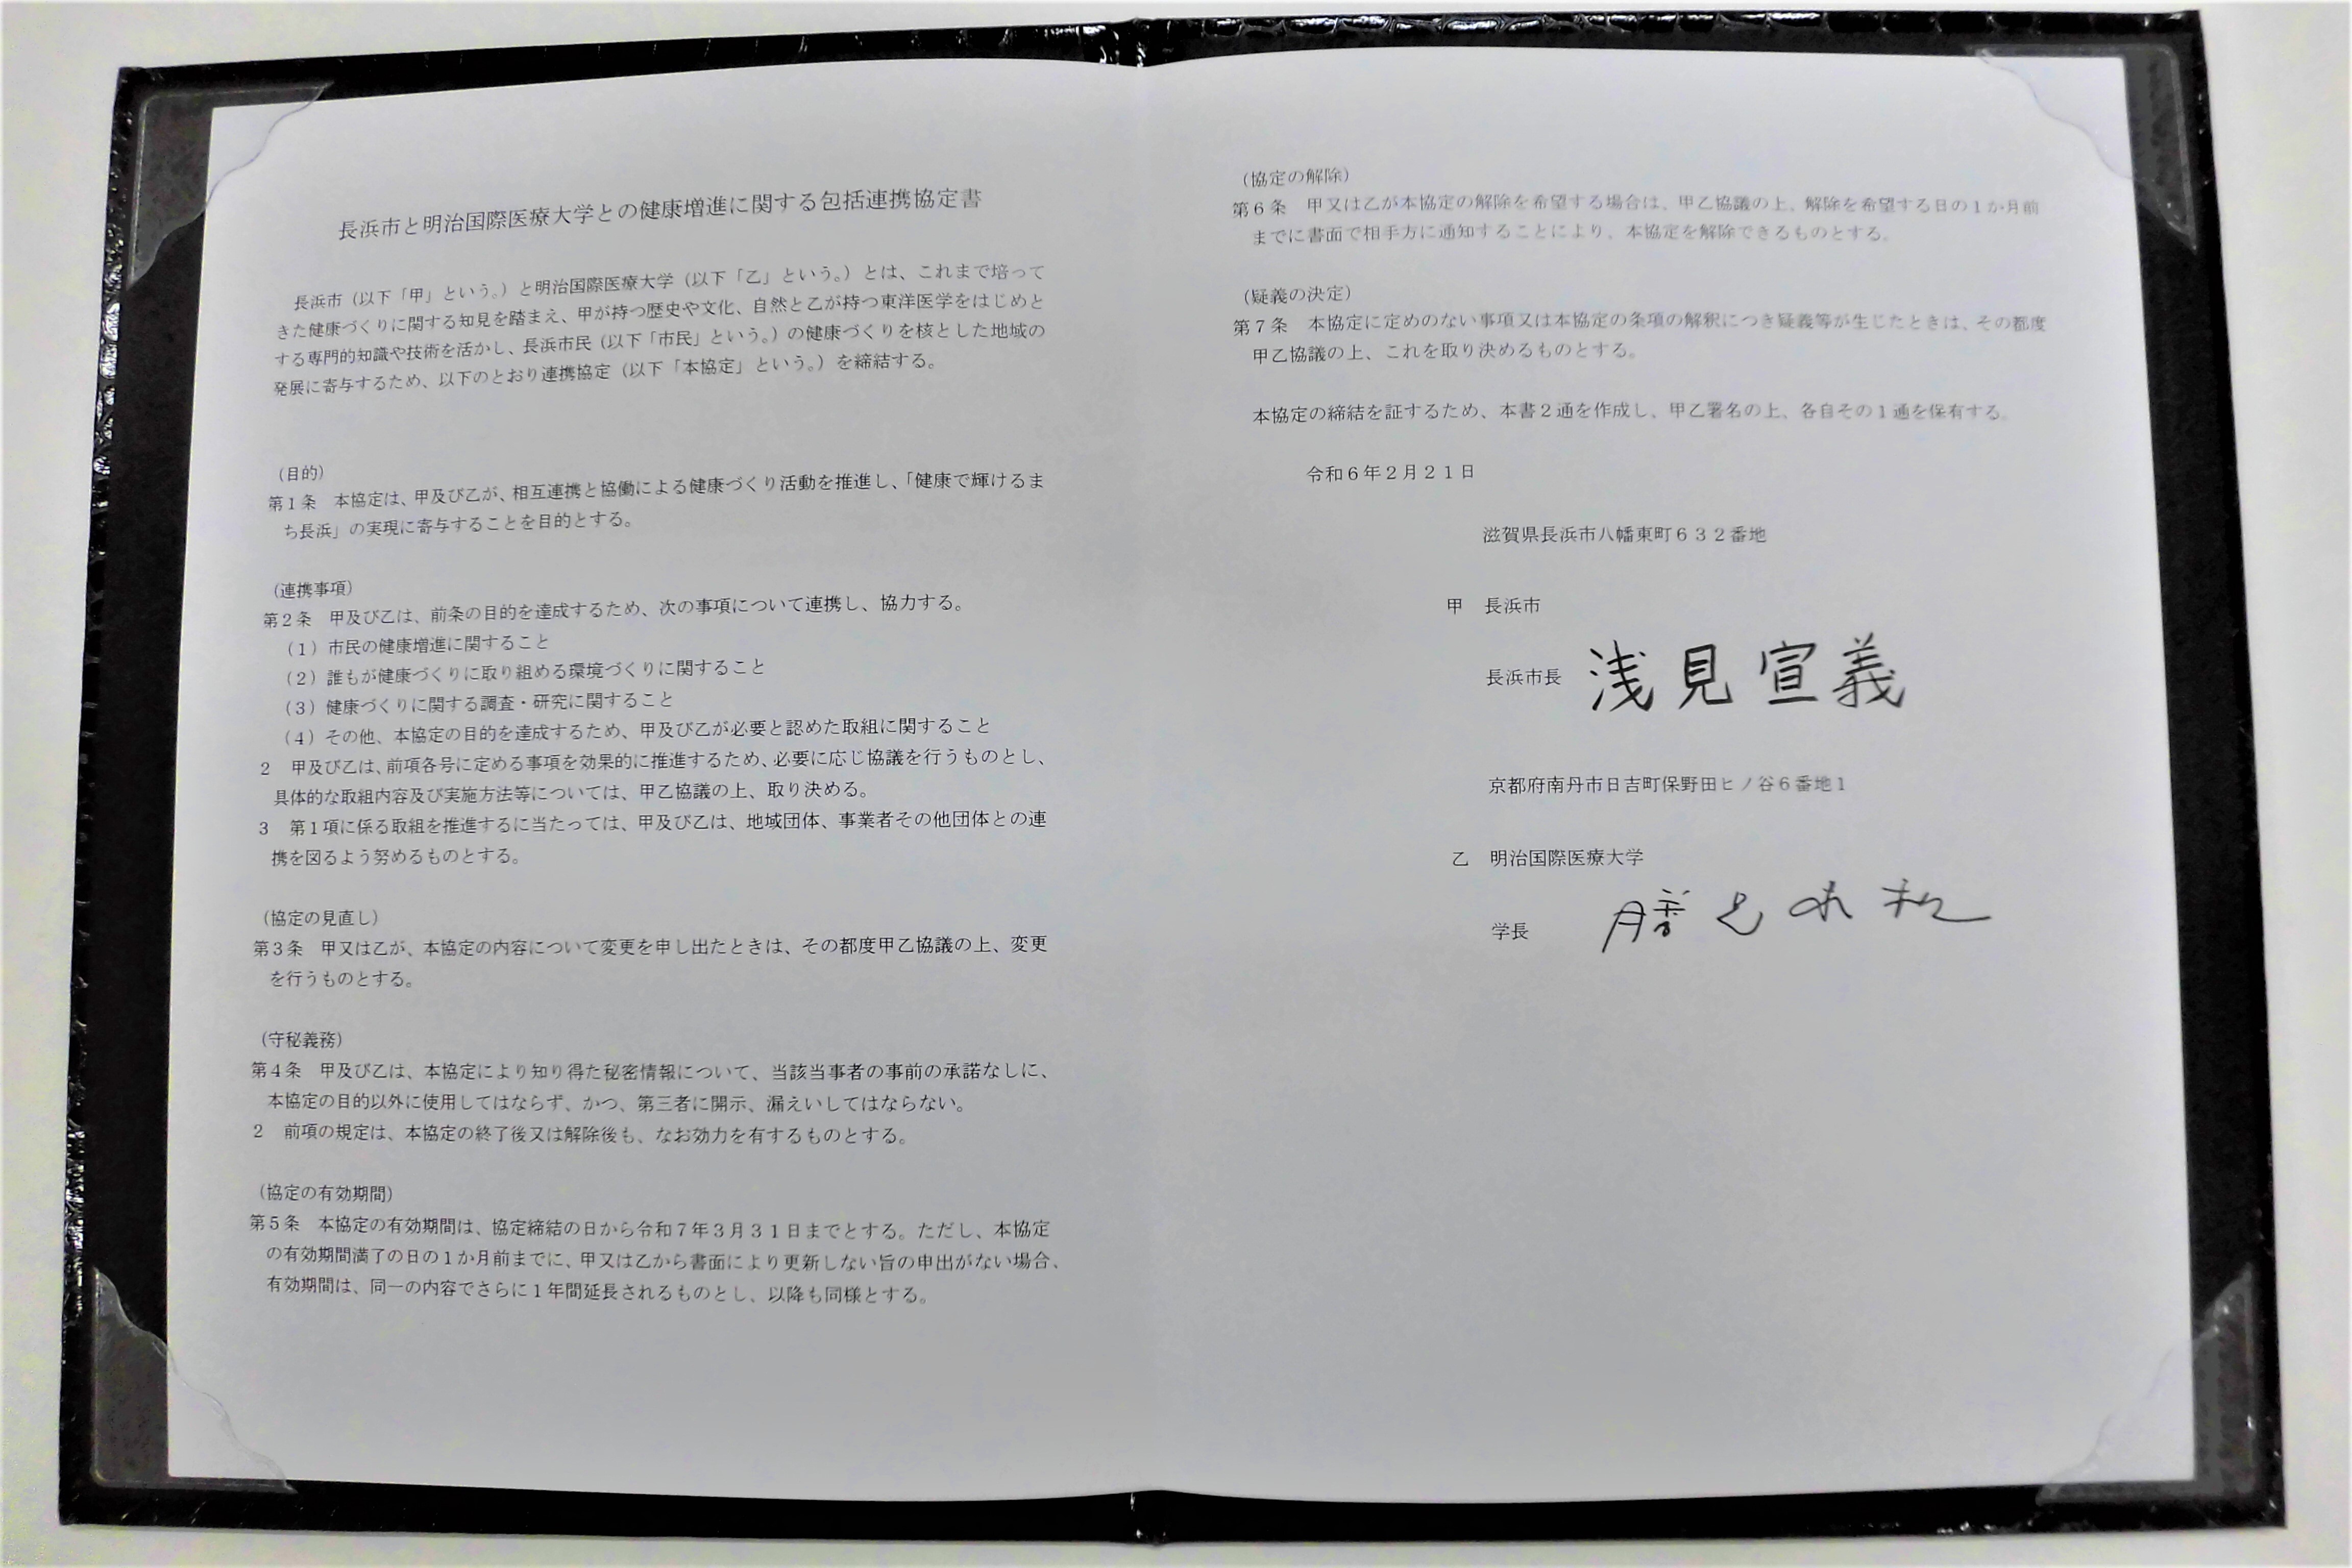 長浜市と明治国際医療大学との健康増進に関する包括連携協定書
長浜市（以下「甲」という。）と明治国際医療大学（以下「乙」という。）とは、これまで培って
きた健康づくりに関する知見を踏まえ、甲が持つ歴史や文化、自然と乙が持つ東洋医学をはじめと
する専門的知識や技術を活かし、長浜市民（以下「市民」という。）の健康づくりを核とした地域の
発展に寄与するため、以下のとおり連携協定（以下「本協定」という。）を締結する。
（目的）
第１条　本協定は、甲及び乙が、相互連携と協働による健康づくり活動を推進し、「健康で輝けるま
ち長浜」の実現に寄与することを目的とする。
（連携事項）
第２条　甲及び乙は、前条の目的を達成するため、次の事項について連携し、協力する。
（１）市民の健康増進に関すること
（２）誰もが健康づくりに取り組める環境づくりに関すること
（３）健康づくりに関する調査・研究に関すること
（４）その他、本協定の目的を達成するため、甲及び乙が必要と認めた取組に関すること
２　甲及び乙は、前項各号に定める事項を効果的に推進するため、必要に応じ協議を行うものとし、
具体的な取組内容及び実施方法等については、甲乙協議の上、取り決める。
３　第１項に係る取組を推進するに当たっては、甲及び乙は、地域団体、事業者その他団体との連
携を図るよう努めるものとする。
（協定の見直し）
第３条　甲又は乙が、本協定の内容について変更を申し出たときは、その都度甲乙協議の上、変更
を行うものとする。
（守秘義務）
第４条　甲及び乙は、本協定により知り得た秘密情報について、当該当事者の事前の承諾なしに、
本協定の目的以外に使用してはならず、かつ、第三者に開示、漏えいしてはならない。
２　前項の規定は、本協定の終了後又は解除後も、なお効力を有するものとする。
（協定の有効期間）
第５条　本協定の有効期間は、協定締結の日から令和７年３月３１日までとする。ただし、本協定
の有効期間満了の日の１か月前までに、甲又は乙から書面により更新しない旨の申出がない場合、
有効期間は、同一の内容でさらに１年間延長されるものとし、以降も同様とする。
（協定の解除）
第６条　甲又は乙が本協定の解除を希望する場合は、甲乙協議の上、解除を希望する日の１か月前
までに書面で相手方に通知することにより、本協定を解除できるものとする。
（疑義の決定）
第７条　本協定に定めのない事項又は本協定の条項の解釈につき疑義等が生じたときは、その都度
甲乙協議の上、これを取り決めるものとする。
本協定の締結を証するため、本書２通を作成し、甲乙署名の上、各自その１通を保有する。
令和６年２月２１日
滋賀県長浜市八幡東町６３２番地
甲　長浜市
長浜市長　浅見宣義
京都府南丹市日吉町保野田ヒノ谷６番地１
乙　明治国際医療大学
学長